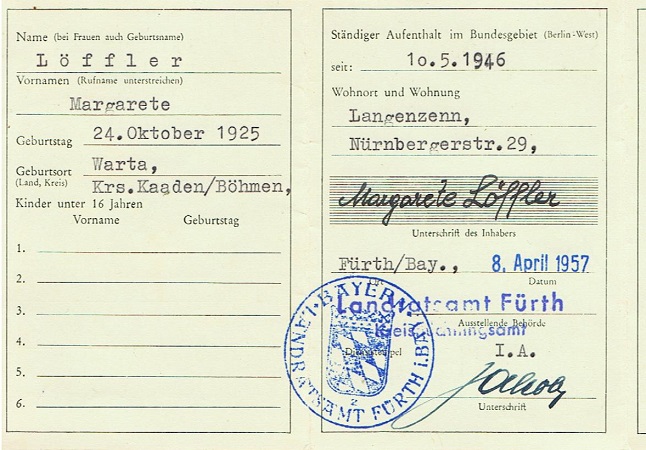 Name (bei Frauen auch Geburtsname)
Löffler
Vornamen (Rufname unterstreichen)
Margarete
Geburtstag 24.Oktober 1925
Geburtsort Warta,
(Land, Kreis) Krs.Kaaden/Böhmen,
Kinder unter 16 Jahren
Vorname Geburtstag
1.
2.
3.
4.
5.
6.
Ständiger Aufenthalt im Bundesgebiet (Berlin-West)
seit: 1o.5.1946
Wohnort und Wohnung
Langenzenn,
Nürnbergerstr.29,
Margarete Löffler
Unterschrift des Inhabers
Fürth/Bay., 8. April 1957
Datum
Landratsamt Fürth
Ausstellende Behörde
Dienststempel
I.A.
Unterschrift
BAYERN
LANDRATSAMT FÜRTH i.BAY.
2